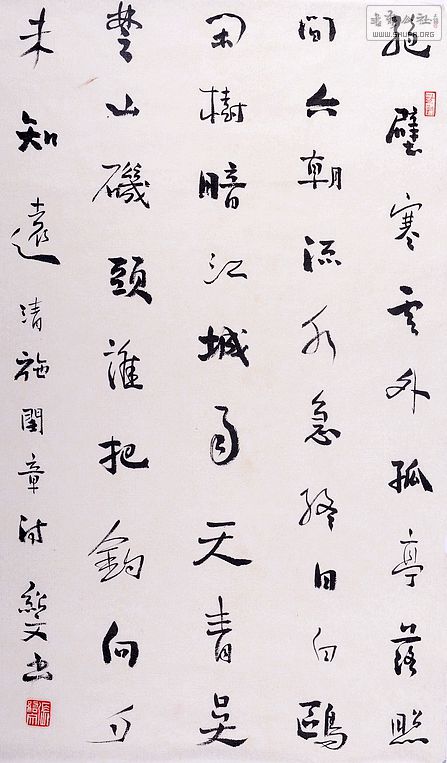 絕壁寒雲外孤亭落照
間六朝流水急終日白鷗
閑樹暗江城雨天青吳
楚山磯頭誰把釣向夕
未知還清施閏章詩書